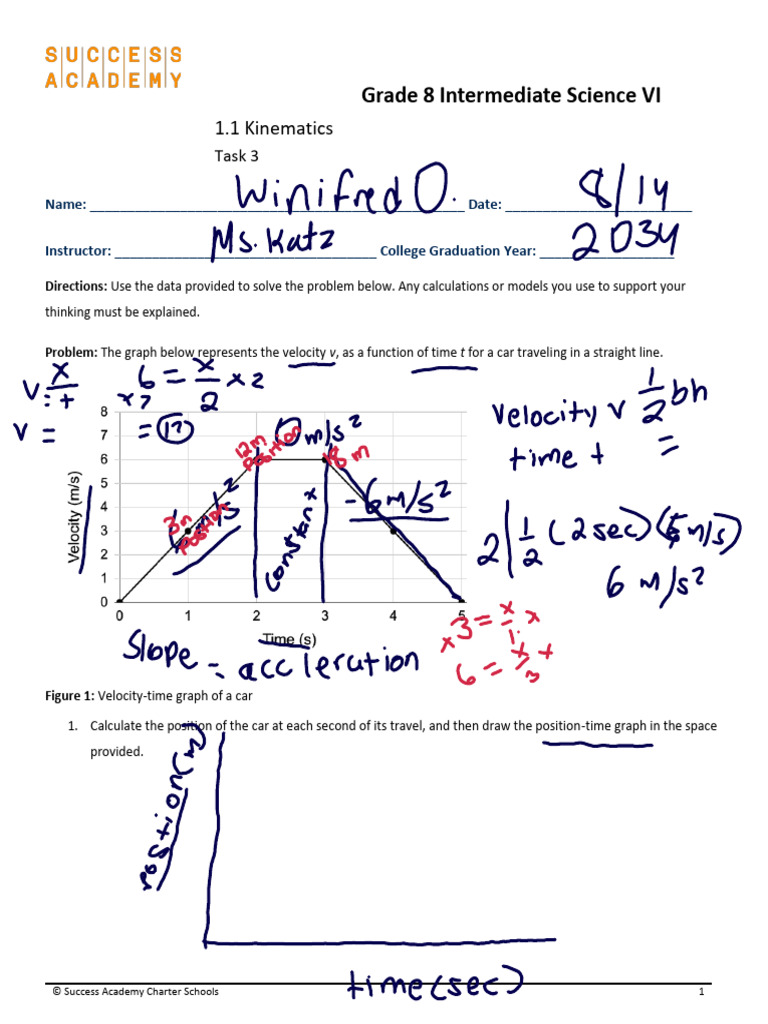 SUCCESS
ACADEMY
Grade 8 Intermediate Science VI
1.1 Kinematics
Task 3
Name: Winifred O. Date: 8/14
Instructor: Ms. Katz College Graduation Year: 2034
Directions: Use the data provided to solve the problem below. Any calculations or models you use to support your
thinking must be explained.
Problem: The graph below represents the velocity v, as a function of time t for a car traveling in a straight line.
v = x/t
x2 6 = x/2 x 2
v = = 12
velocity v 1/2 bh
time t =
8
7
6
5
4
3
2
1
0
Velocity (m/s)
0 1 2 3 4 5
Time (s)
12m position
0 m/s²
18 m
3m position
constant
-6m/s²
2 1/2 (2 sec) (6 m/s)
6 m/s²
x 3 = x/1 x
6 = x/3
Slope = accleration
Figure 1: Velocity-time graph of a car
1. Calculate the position of the car at each second of its travel, and then draw the position-time graph in the space
provided.
position (m)
time (sec)
© Success Academy Charter Schools 1